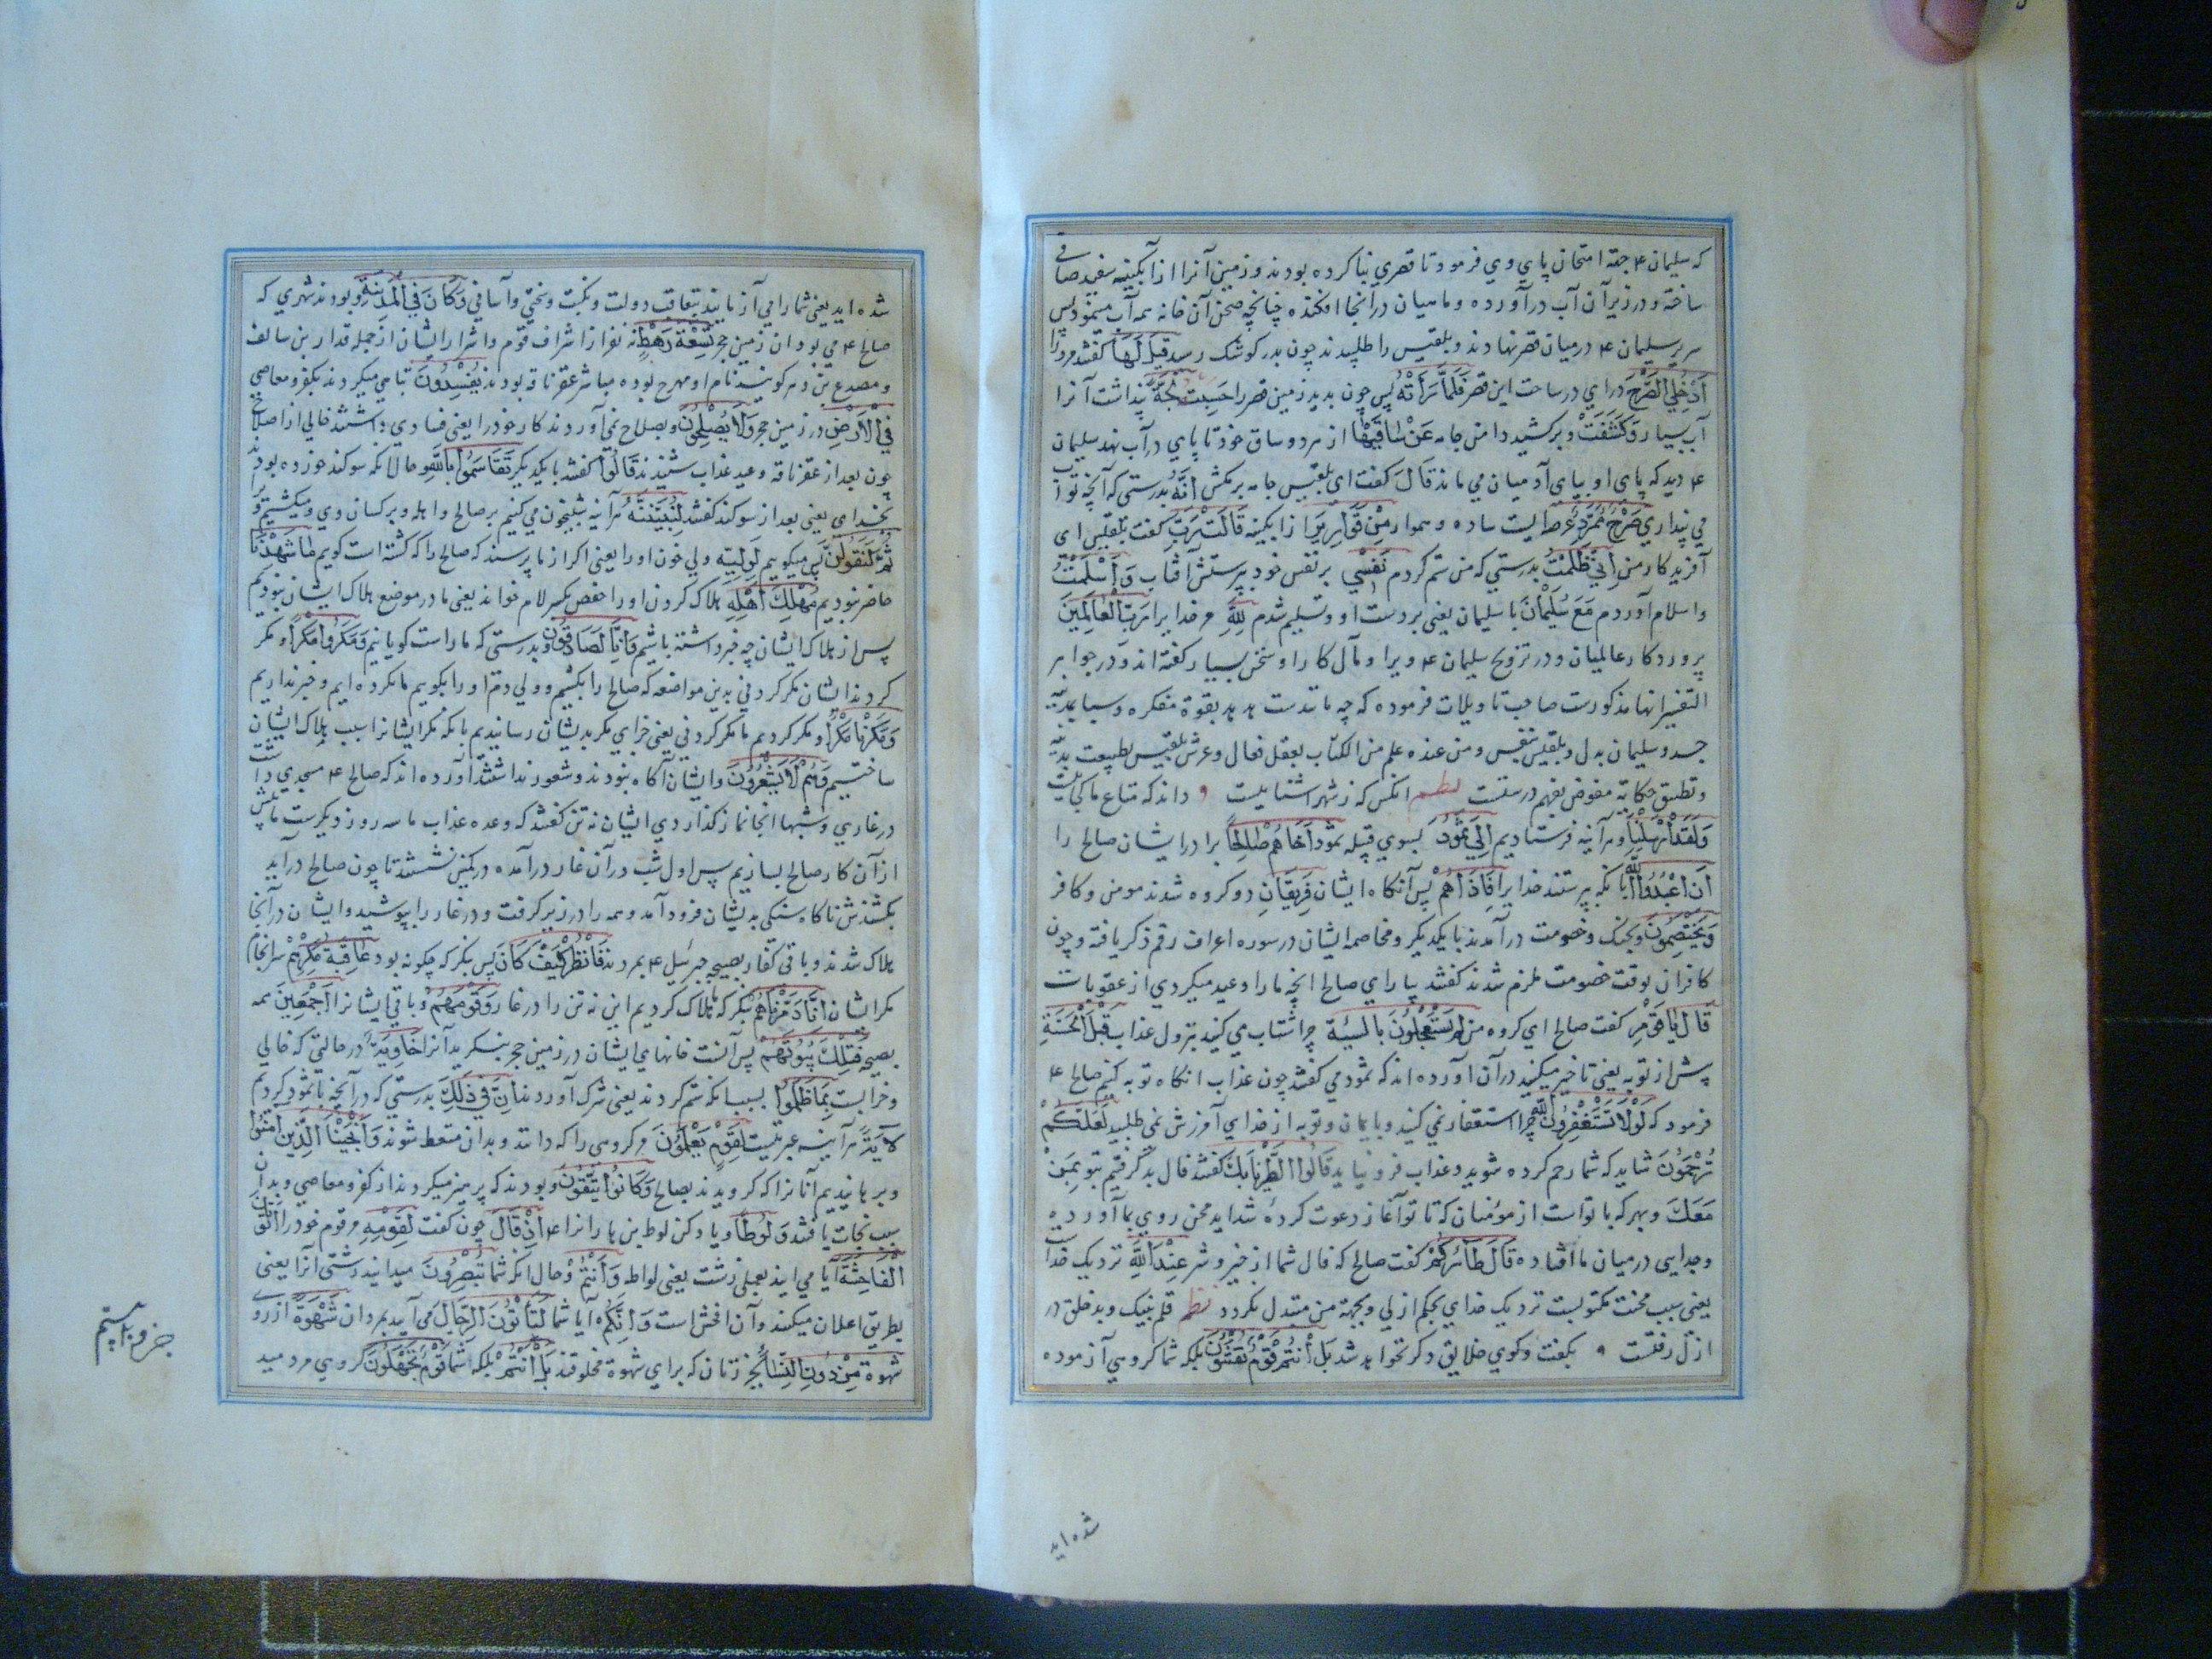 که سلیمان ۴ جهة امتحان پای وی فرمود تا قصری بنا کرده بودند و زمین آنرا از آبکینه سفید صافی
ساخته و در زیر آن آب در آورده و ماهیان در آنجا افکنده چنانچه صحن آن خانه همه آب مینمود پس
سریر سلیمان ۴ در میان قصر نهادند و بلقیس را طلبیدند چون بدر کوشک رسید قِیلَ لَهَا کفتند مرو را
اُدْخُلِي الصَّرْحَ درای در ساحت این قصر فَلَمَّا رَأَتْهُ پس چون بدید زمین قصر را حَسِبَتْهُ لُجَّةً پنداشت آنرا
آب بسیار وَكَشَفَتْ و برکشید دامن جامه عَنْ سَاقَيْهَا از هر دو ساق خود تا پای در آب نهد سلیمان
۴ دید که پای او بپای آدمیان می ماند قَالَ کفت ای بلقیس جامه برمکش اِنَّهُ بدرستی که آنچه تو آب
می پنداری صَرْحٌ مُمَرَّدٌ عرصه ایست ساده و هموار مِنْ قَوَارِيرَ از آبکینه قَالَتْ رَبِّ کفت بلقیس ای
آفریدکار من اِنِّي ظَلَمْتُ بدرستی که من ستم کردم نَفْسِي بر نفس خود بپرستش آفتاب وَأَسْلَمْتُ
و اسلام آوردم مَعَ سُلَيْمٰنَ با سلیمان یعنی بر دست او و تسلیم شدم لِلّٰهِ مر خدایرا رَبِّ الْعَالَمِينَ
پروردکار عالمیان و در تزویج سلیمان ۴ ویرا و مآل کار او سخن بسیار کفته اند و در جواهر
التفسیر انها مذکورست صاحب تاویلات فرموده که چه مانندست هدهد بقوة مفکره و سبا بمدینه
جسد و سلیمان بدل و بلقیس بنفس و من عنده علم من الکتاب بعقل فعال و عرش بلقیس بطبیعت بدنیه
و تطبیق حکایة مفوض بفهم درستست نظم انکس که ز شهر آشناییست ۹ داند که متاع ما کجاییست
وَلَقَدْ أَرْسَلْنَا و هر آینه فرستادیم اِلٰی ثَمُودَ بسوی قبیله ثمود أَخَاهُمْ صَالِحًا برادر ایشان صالح را
أَنِ اعْبُدُوا اللّٰهَ بانکه بپرستند خدایرا فَاِذَا هُمْ پس آنکاه ایشان فَرِيقَانِ دو کروه شدند مومن و کافر
يَخْتَصِمُونَ و بجنک و خصومت در آمدند با یکدیکر و مخاصمه ایشان در سوره اعراف رقم ذکر یافته و چون
کافران بوقت خصومت ملزم شدند کفتند بیار ای صالح آنچه ما را وعید میکردی از عقوبات
قَالَ يَا قَوْمِ کفت صالح ای کروه من لِمَ تَسْتَعْجِلُونَ بِالسَّيِّئَةِ چرا شتاب می کنید بنزول عذاب قَبْلَ الْحَسَنَةِ
پیش از توبه یعنی تاخیر میکنید در آن آورده اند که ثمود می کفتند چون عذاب آید انکاه توبه کنیم صالح ۴
فرمود که لَوْلَا تَسْتَغْفِرُونَ اللّٰهَ چرا استغفار نمی کنید و بایمان و توبه از خدای آمرزش نمی طلبید لَعَلَّكُمْ
تُرْحَمُونَ شاید که شما رحم کرده شوید و عذاب فرو نیاید قَالُوا اطَّيَّرْنَا بِكَ کفتند فال بد کرفتیم بتو وَبِمَنْ
مَعَكَ و بهر که با تواست از مؤمنان که تا تو آغاز دعوت کردهٔ شداید محن روی بما آورده
و جدایی در میان ما افتاده قَالَ طَائِرُكُمْ کفت صالح که فال شما از خیر و شر عِنْدَ اللّٰهِ نزدیک خدا
یعنی سبب محنت مکتوبست نزدیک خدای بحکم ازلی و بجهة من متبدل نکردد نظم قلم بنیک و بد خلق در
ازل رفتست ۹ بکفت و کوی خلایق دکر نخواهد شد بَلْ أَنْتُمْ قَوْمٌ تُفْتَنُونَ بلکه شما کروهی آزموده
شده اید
شده اید یعنی شما را می آزمایند بتعاقب دولت و نکبت و سختی و آسانی وَكَانَ فِي الْمَدِينَةِ و بودند شهری که
صالح ۴ می بود ان زمین حجر تِسْعَةُ رَهْطٍ نه نفر از اشراف قوم و اشرار ایشان از جمله قدار بن سالف
و مصدع بن دهر کویند نام او مهرج بوده مباشر عقر ناقه بودند يُفْسِدُونَ تباهی میکردند بکفر و معاصی
فِي الْأَرْضِ در زمین حجر وَلَا يُصْلِحُونَ و بصلاح نمی آوردند کار خود را یعنی فسادی داشتند خالی از اصلاح
چون بعد از عقر ناقه وعید عذاب شنیدند قَالُوا کفتند با یکدیکر تَقَاسَمُوا بِاللّٰهِ حال آنکه سوکند خورده بودند
بخدای یعنی بعد از سوکند کفتند لَنُبَيِّتَنَّهُ هر آینه شبیخون می کنیم بر صالح وَاَهْلَهُ و بر کسان وی و میکشیم ویرا
ثُمَّ لَنَقُولَنَّ پس میکوییم لِوَلِيِّهِ ولی خون او را یعنی اکر از ما پرسند که صالح را که کشته است کوییم مَا شَهِدْنَا
حاضر نبودیم مَهْلِكَ أَهْلِهِ هلاک کردن او را حفص بکسر لام خواند یعنی ما در موضع هلاک ایشان نبودیم
پس از هلاک ایشان چه خبر داشته باشیم وَاِنَّا لَصَادِقُونَ و بدرستی که ما راست کویانیم وَمَكَرُوا مَكْرًا و مکر
کردند ایشان مکر کردنی بدین مواضعه که صالح را بکشیم و ولی دم او را بکوییم ما نکرده ایم و خبر نداریم
وَمَكَرْنَا مَكْرًا و مکر کردیم ما مکر کردنی یعنی جزای مکر بدیشان رسانیدیم بانکه مکر ایشانرا سبب هلاک ایشان
ساختیم وَهُمْ لَا يَشْعُرُونَ و ایشان آکاه نبودند و شعور نداشتند آورده اند که صالح ۴ مسجدی داشت
در غاری و شبها انجا نماز کذاردی ایشان نه تن کفتند که وعده عذاب ما سه روز دیکرست ما پیش
از آن کار صالح بسازیم پس اول شب در آن غار در آمده در کمین نشستند تا چون صالح در آید
بکشندش ناکاه سنکی بدیشان فرود آمد و همه را در زیر کرفت و در غار را بپوشید و ایشان در آنجا
هلاک شدند و باقی کفار بصیحهٔ جبرئیل ۴ بمردند فَانْظُرْ كَيْفَ كَانَ پس بنکر که چکونه بود عَاقِبَةُ مَكْرِهِمْ سرانجام
مکر ایشان اَنَّا دَمَّرْنَاهُمْ بنکر که ما هلاک کردیم این نه تن را در غار وَقَوْمَهُمْ و باقی ایشانرا أَجْمَعِينَ همه
بصیحه فَتِلْكَ بُيُوتُهُمْ پس آنست خانهای ایشان در زمین حجر بنکرید آنرا خَاوِيَةً در حالتی که خالی
و خرابست بِمَا ظَلَمُوا بسبب آنکه ستم کردند یعنی شرک آوردند اِنَّ فِي ذَلِكَ بدرستی که در آنچه با ثمود کردیم
لَآيَةً هر آینه عبرتیست لِقَوْمٍ يَعْلَمُونَ مر کروهی را که دانند و بدان متعظ شوند وَأَنْجَيْنَا الَّذِينَ اٰمَنُوا
و برهانیدیم آنانرا که کرویدند بصالح وَكَانُوا يَتَّقُونَ و بودند که پرهیز میکردند از کفر و معاصی و بدان
سبب نجات یافتند وَلُوطًا و یاد کن لوط بن هارانرا ۴ اِذْ قَالَ چون کفت لِقَوْمِهِ مر قوم خود را أَتَأْتُونَ
الْفَاحِشَةَ آیا می ایید بعملی زشت یعنی لواطه وَأَنْتُمْ و حال آنکه شما تُبْصِرُونَ میدانید زشتی آنرا یعنی
بطریق اعلان میکنید و آن افحش است أَئِنَّكُمْ آیا شما لَتَأْتُونَ الرِّجَالَ می آیید بمردان شَهْوَةً از روی
شهوة مِنْ دُونِ النِّسَاءِ بجز زنان که برای شهوة مخلوقند بَلْ أَنْتُمْ بلکه شما قَوْمٌ تَجْهَلُونَ کروهی مردمید